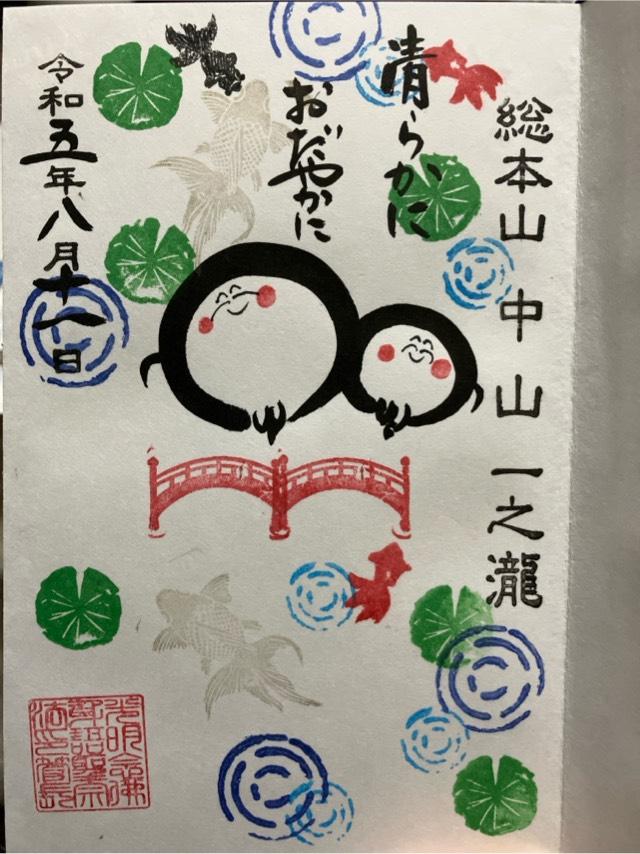 総本山 中山 一之瀧
清らかに
おだやかに
令和五年八月十一日